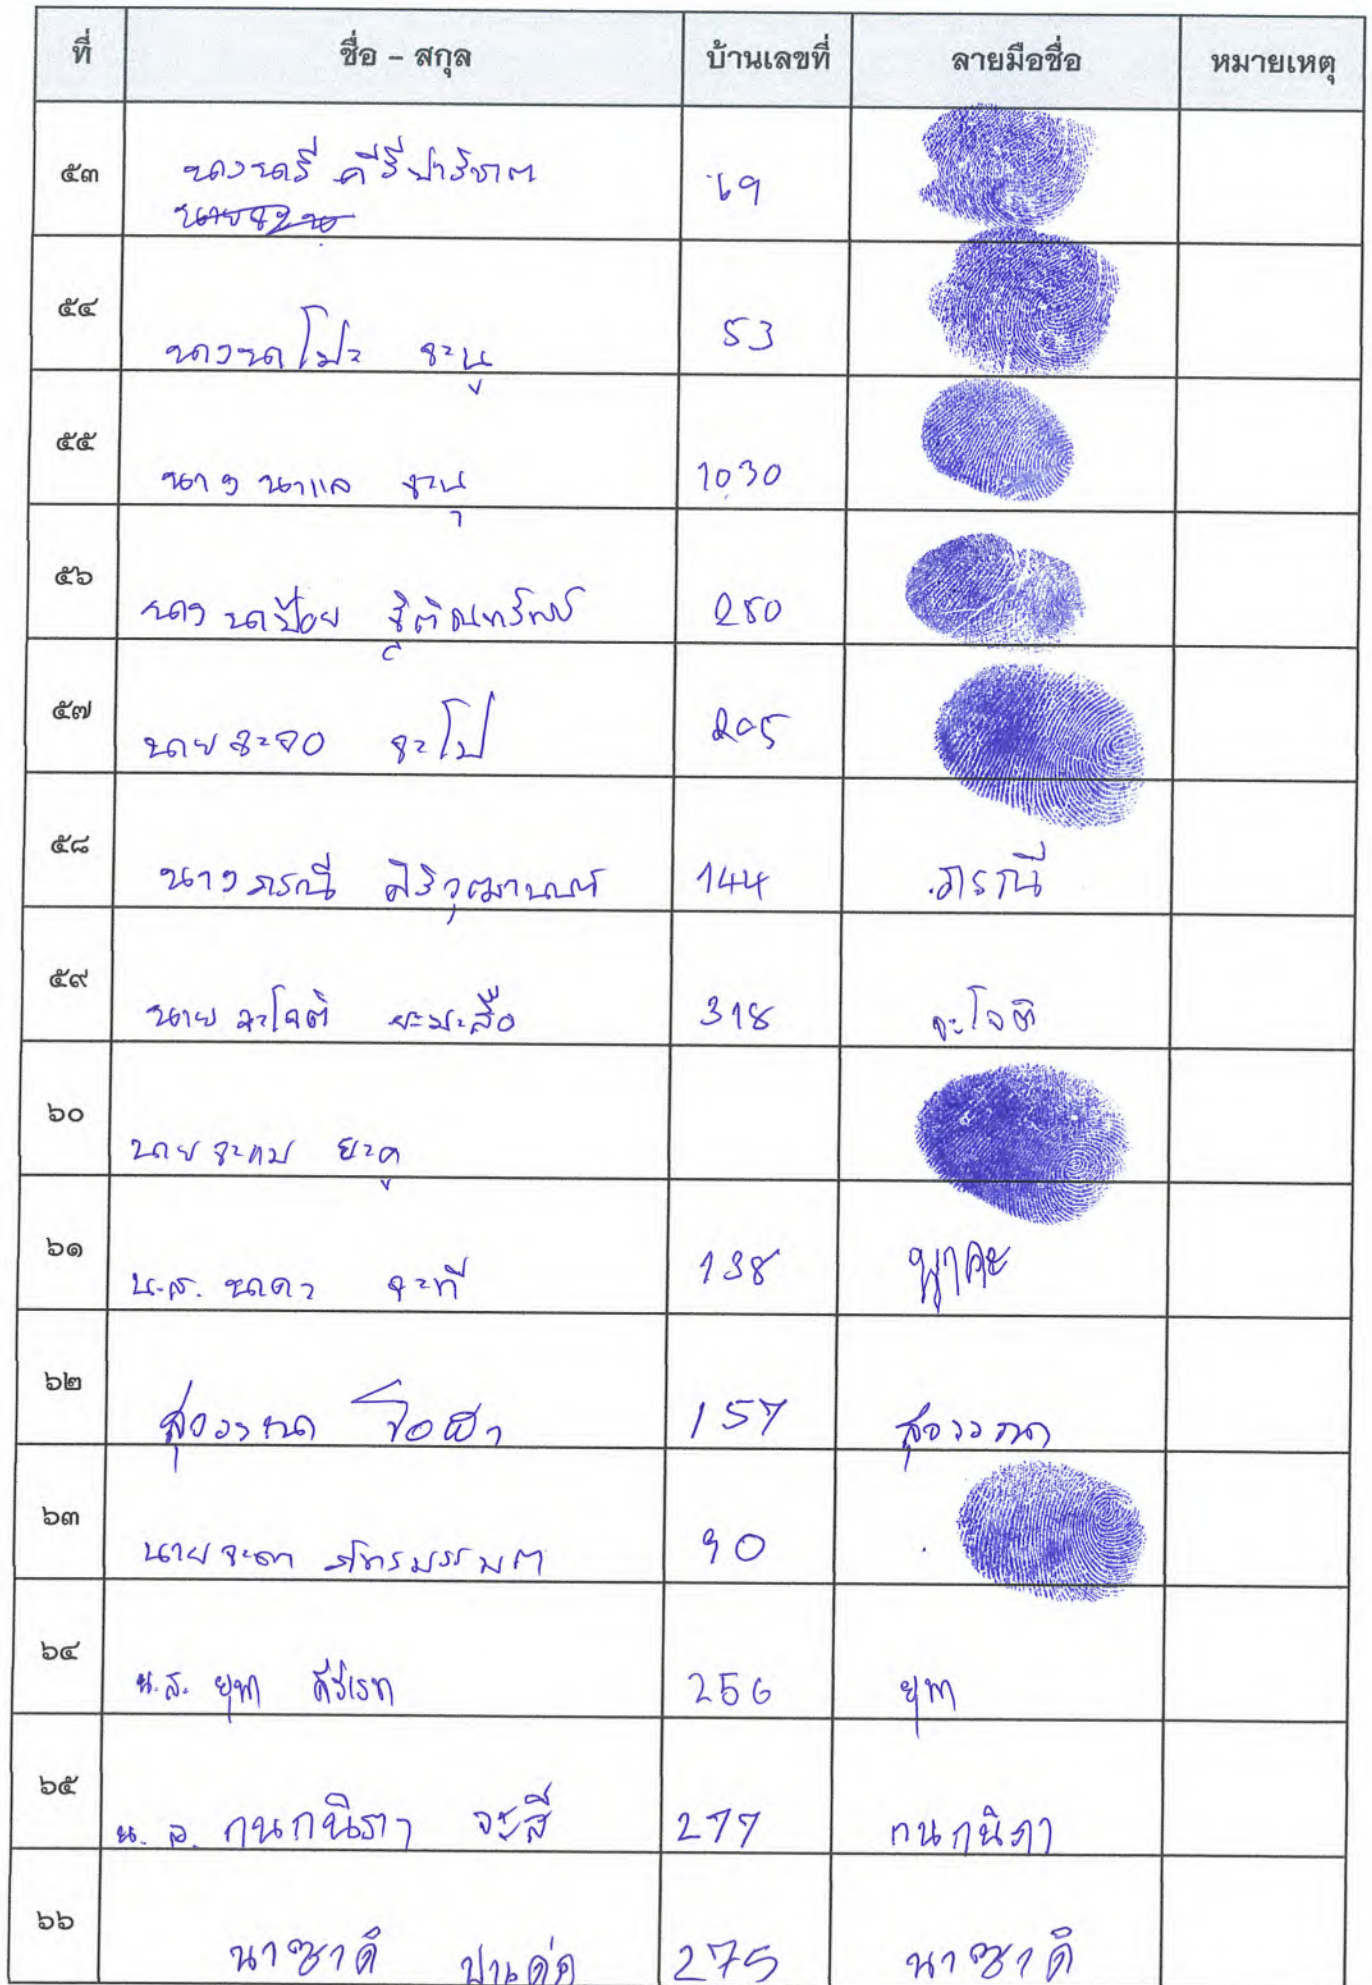 ที่ ชื่อ - สกุล บ้านเลขที่ ลายมือชื่อ หมายเหตุ
๕๓ นางนารี คีรีปาริชาต 69
๕๔ นางนาโปะ จะนู 53
๕๕ นาง นาแล จะนุ 1030
๕๖ นาง นาป๋อย 250
๕๗ นาย จะจอ จะโป 205
๕๘ นาง ภรณี ศิริวุฒานนท์ 144 ภรณี
๕๙ นาย จะโจติ ยะมะสือ 318 จะโจติ
๖๐ นาย จะแบ ยะดู
๖๑ น.ส. จะที 138
๖๒ สุวรรณา 157 สุวรรณา
๖๓ นาย จะดา 90
๖๔ น.ส. ยุพา คีรีเรขา 256 ยุพา
๖๕ น.ส. กนกนิภา จะสี 277 กนกนิภา
๖๖ นาซาติ 275 นาซาติ